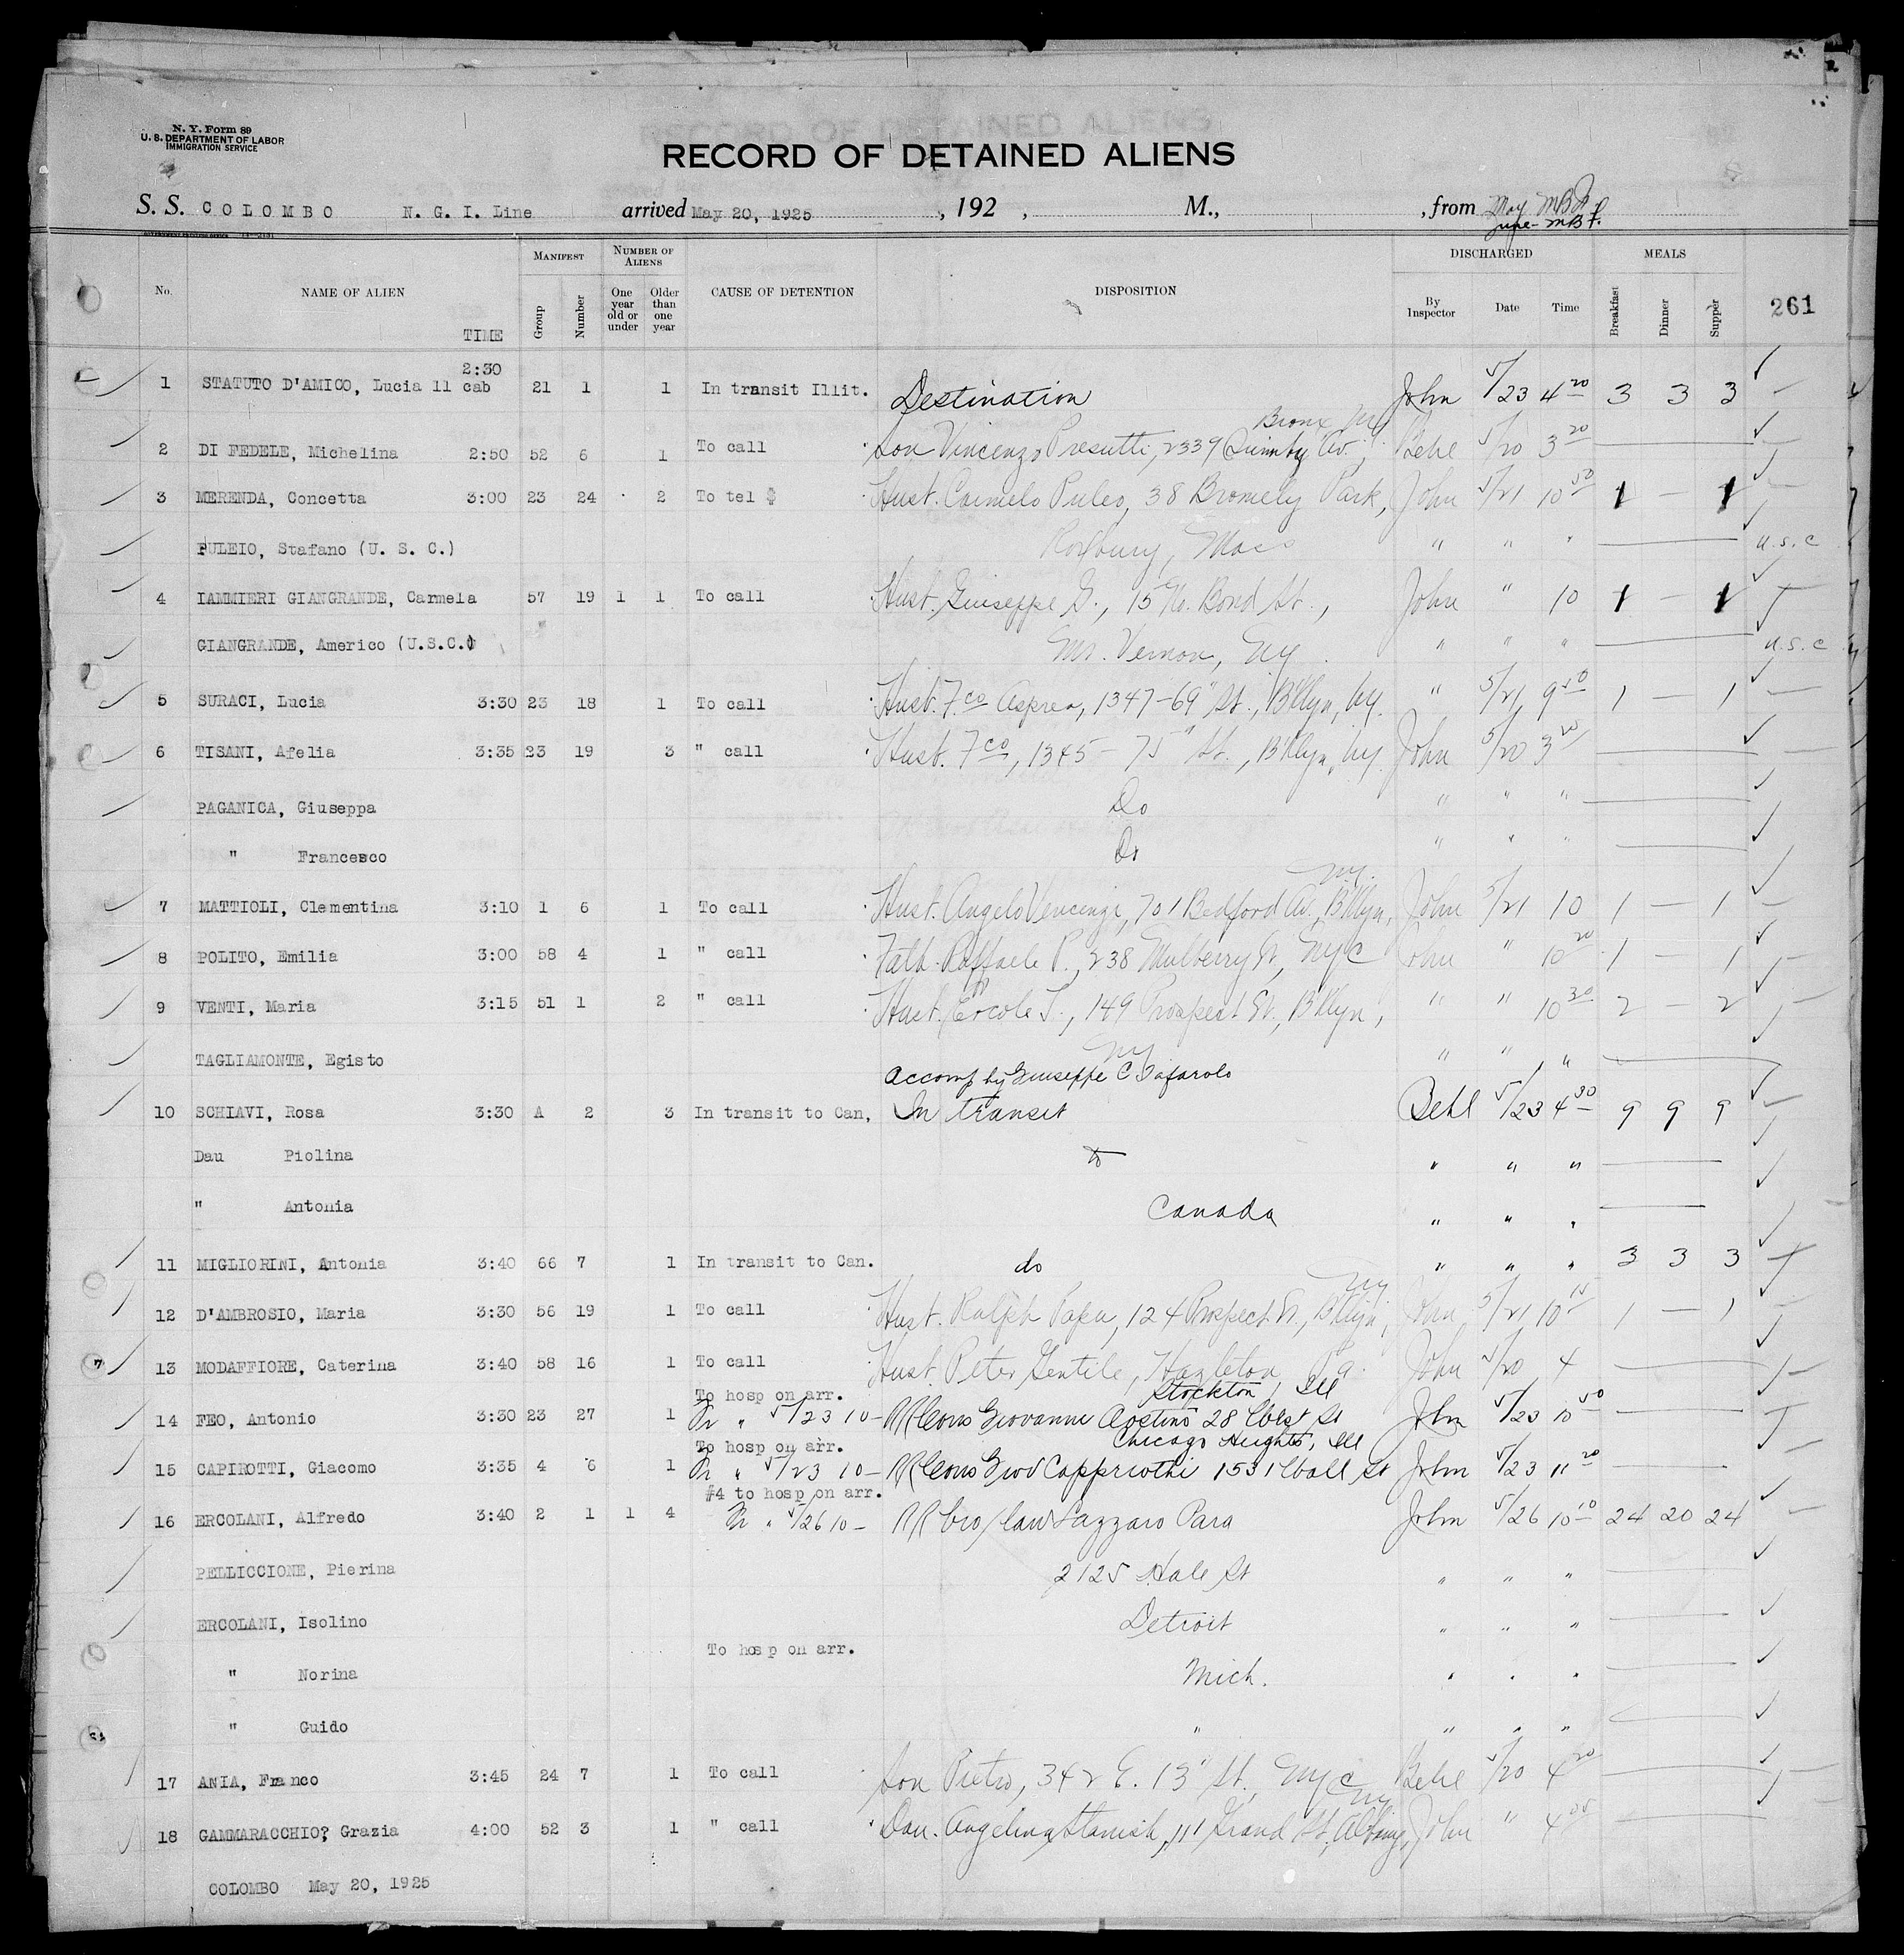 N. Y. Form 89
U. S. DEPARTMENT OF LABOR
IMMIGRATION SERVICE
RECORD OF DETAINED ALIENS
S. S. COLOMBO N. G. I. Line arrived May 20, 1925, 192 , M., , from May MBF
June - MBF.
No. NAME OF ALIEN TIME MANIFEST Group Number NUMBER OF ALIENS One year old or under Older than one year CAUSE OF DETENTION DISPOSITION DISCHARGED By Inspector Date Time MEALS Breakfast Dinner Supper 261
2:30
1 STATUTO D'AMICO, Lucia 11 cab 21 1 1 In transit Illit. Destination John 5/23 4 20 3 3 3
Bronx NY
2 DI FEDELE, Michelina 2:50 52 6 1 To call Son Vincenzo Presutti, 2339 Quimby Av. Behl 5/20 3 20
3 MERENDA, Concetta 3:00 23 24 2 To tel $ Husb. Carmelo Puleo, 38 Bromely Park, John 5/21 10 50 1 — 1
PULEIO, Stafano (U. S. C.) Roxbury, Mass " " " U.S.C
4 IAMMIERI GIANGRANDE, Carmela 57 19 1 1 To call Husb. Giuseppe G., 15 No. Bond St., John " 10 1 — 1
GIANGRANDE, Americo (U.S.C.) Mt. Vernon, NY " " " U.S.C
5 SURACI, Lucia 3:30 23 18 1 To call Husb. Fco Asprea, 1347-69" St., B'klyn, NY. " 5/21 9 50 1 — 1
6 TISANI, Afelia 3:35 23 19 3 " call Husb. Fco, 1345 - 75" St., B'klyn, NY. John 5/20 3 20
PAGANICA, Giuseppa Do " " "
" Francesco Do " " "
NY.
7 MATTIOLI, Clementina 3:10 1 6 1 To call Husb. Angelo Vencenzi, 701 Bedford Av., B'klyn, John 5/21 10 1 — 1
8 POLITO, Emilia 3:00 58 4 1 " call Fath. Raffaele P., 238 Mulberry St, NYC John " 10 20 1 — 1
9 VENTI, Maria 3:15 51 1 2 " call Husb. Ercole T., 149 Prospect St., B'klyn, " " 10 30 2 — 2
NY
TAGLIAMONTE, Egisto " " "
accomp by Giuseppe
10 SCHIAVI, Rosa 3:30 A 2 3 In transit to Can, In transit Behl 5/23 4 30 9 9 9
Dau Piolina to " " "
" Antonia Canada " " "
11 MIGLIORINI, Antonia 3:40 66 7 1 In transit to Can. do " " " 3 3 3
NY
12 D'AMBROSIO, Maria 3:30 56 19 1 To call Husb. Ralph Papa, 124 Prospect St., B'klyn, John 5/21 10 15 1 — 1
13 MODAFFIORE, Caterina 3:40 58 16 1 To call Husb. Peter Gentile, Hazleton Pa. John 5/20 4
To hosp on arr. Stockton, Ill
14 FEO, Antonio 3:30 23 27 1 Fr " 5/23 10 - RR Cous Giovanni Aostino 28 West St John 5/23 10 50
To hosp on arr. Chicago Heights, Ill
15 CAPIROTTI, Giacomo 3:35 4 6 1 Fr " 5/23 10 - RR Cous Giov Cappriothi 1531 Wall St John 5/23 11 20
#4 to hosp on arr.
16 ERCOLANI, Alfredo 3:40 2 1 1 4 Fr " 5/26 10 - RR bro/law Lazzaro Para John 5/26 10 10 24 20 24
PELLICCIONE, Pierina 2125 Hale St " " "
ERCOLANI, Isolino Detroit " " "
To hosp on arr.
" Norina Mich. " " "
" Guido " " " "
17 ANIA, Franco 3:45 24 7 1 To call Son Pietro, 342 E. 13" St, NYC Behl 5/20 4 20
NY
18 GAMMARACCHIO?, Grazia 4:00 52 3 1 " call Dau. Angelina Stanish, 111 Grand St, Albany, John " 4 05
COLOMBO May 20, 1925